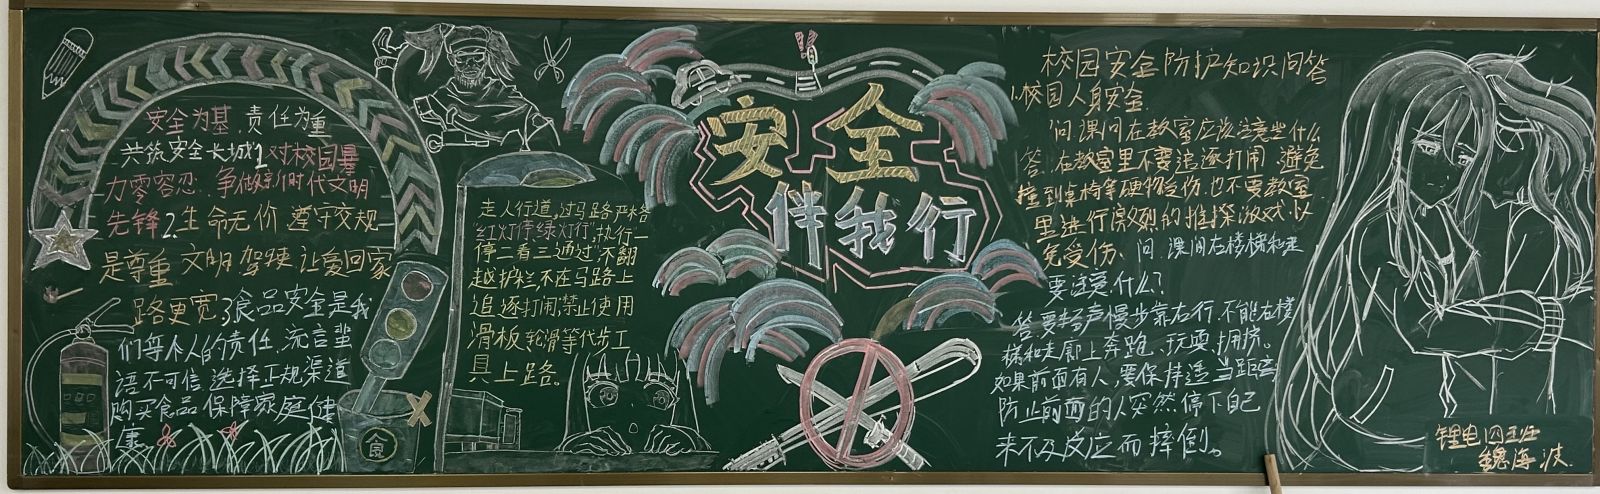 安全为基,责任为重
共筑安全长城1.对校园暴
力零容忍.争做新时代文明
先锋2.生命无价 遵守交规
是尊重 文明驾驶 让爱回家
路更宽3食品安全是我
们每个人的责任,流言蜚
语不可信 选择正规渠道
购买食品 保障家庭健
康
食
走人行道,过马路严格
"红灯停绿灯行",执行一
停二看三通过"不翻
越护栏不在马路上
追逐打闹,禁止使用
滑板,轮滑等代步工
具上路。
安全
伴我行
校园安全防护知识问答
1.校园人身安全.
问.课间在教室应该注意些什么
答.在教室里不要追逐打闹,避免
撞到桌椅等硬物受伤.也不要教室
里进行激烈的推搡游戏.以
免受伤、问.课间在楼梯和走
要注意什么?
答.要轻声慢步靠右行.不能在楼
梯和走廊上奔跑、玩耍、拥挤。
如果前面有人,要保持适当距离
防止前面的人突然停下自己
来不及反应而摔倒。
锂电四班
魏海波